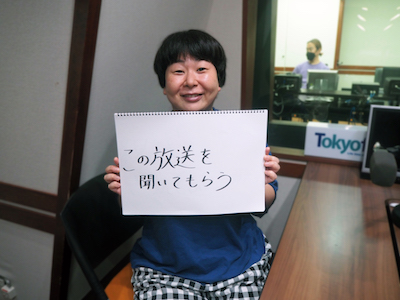 この放送を
聞いてもらう
Tokyof